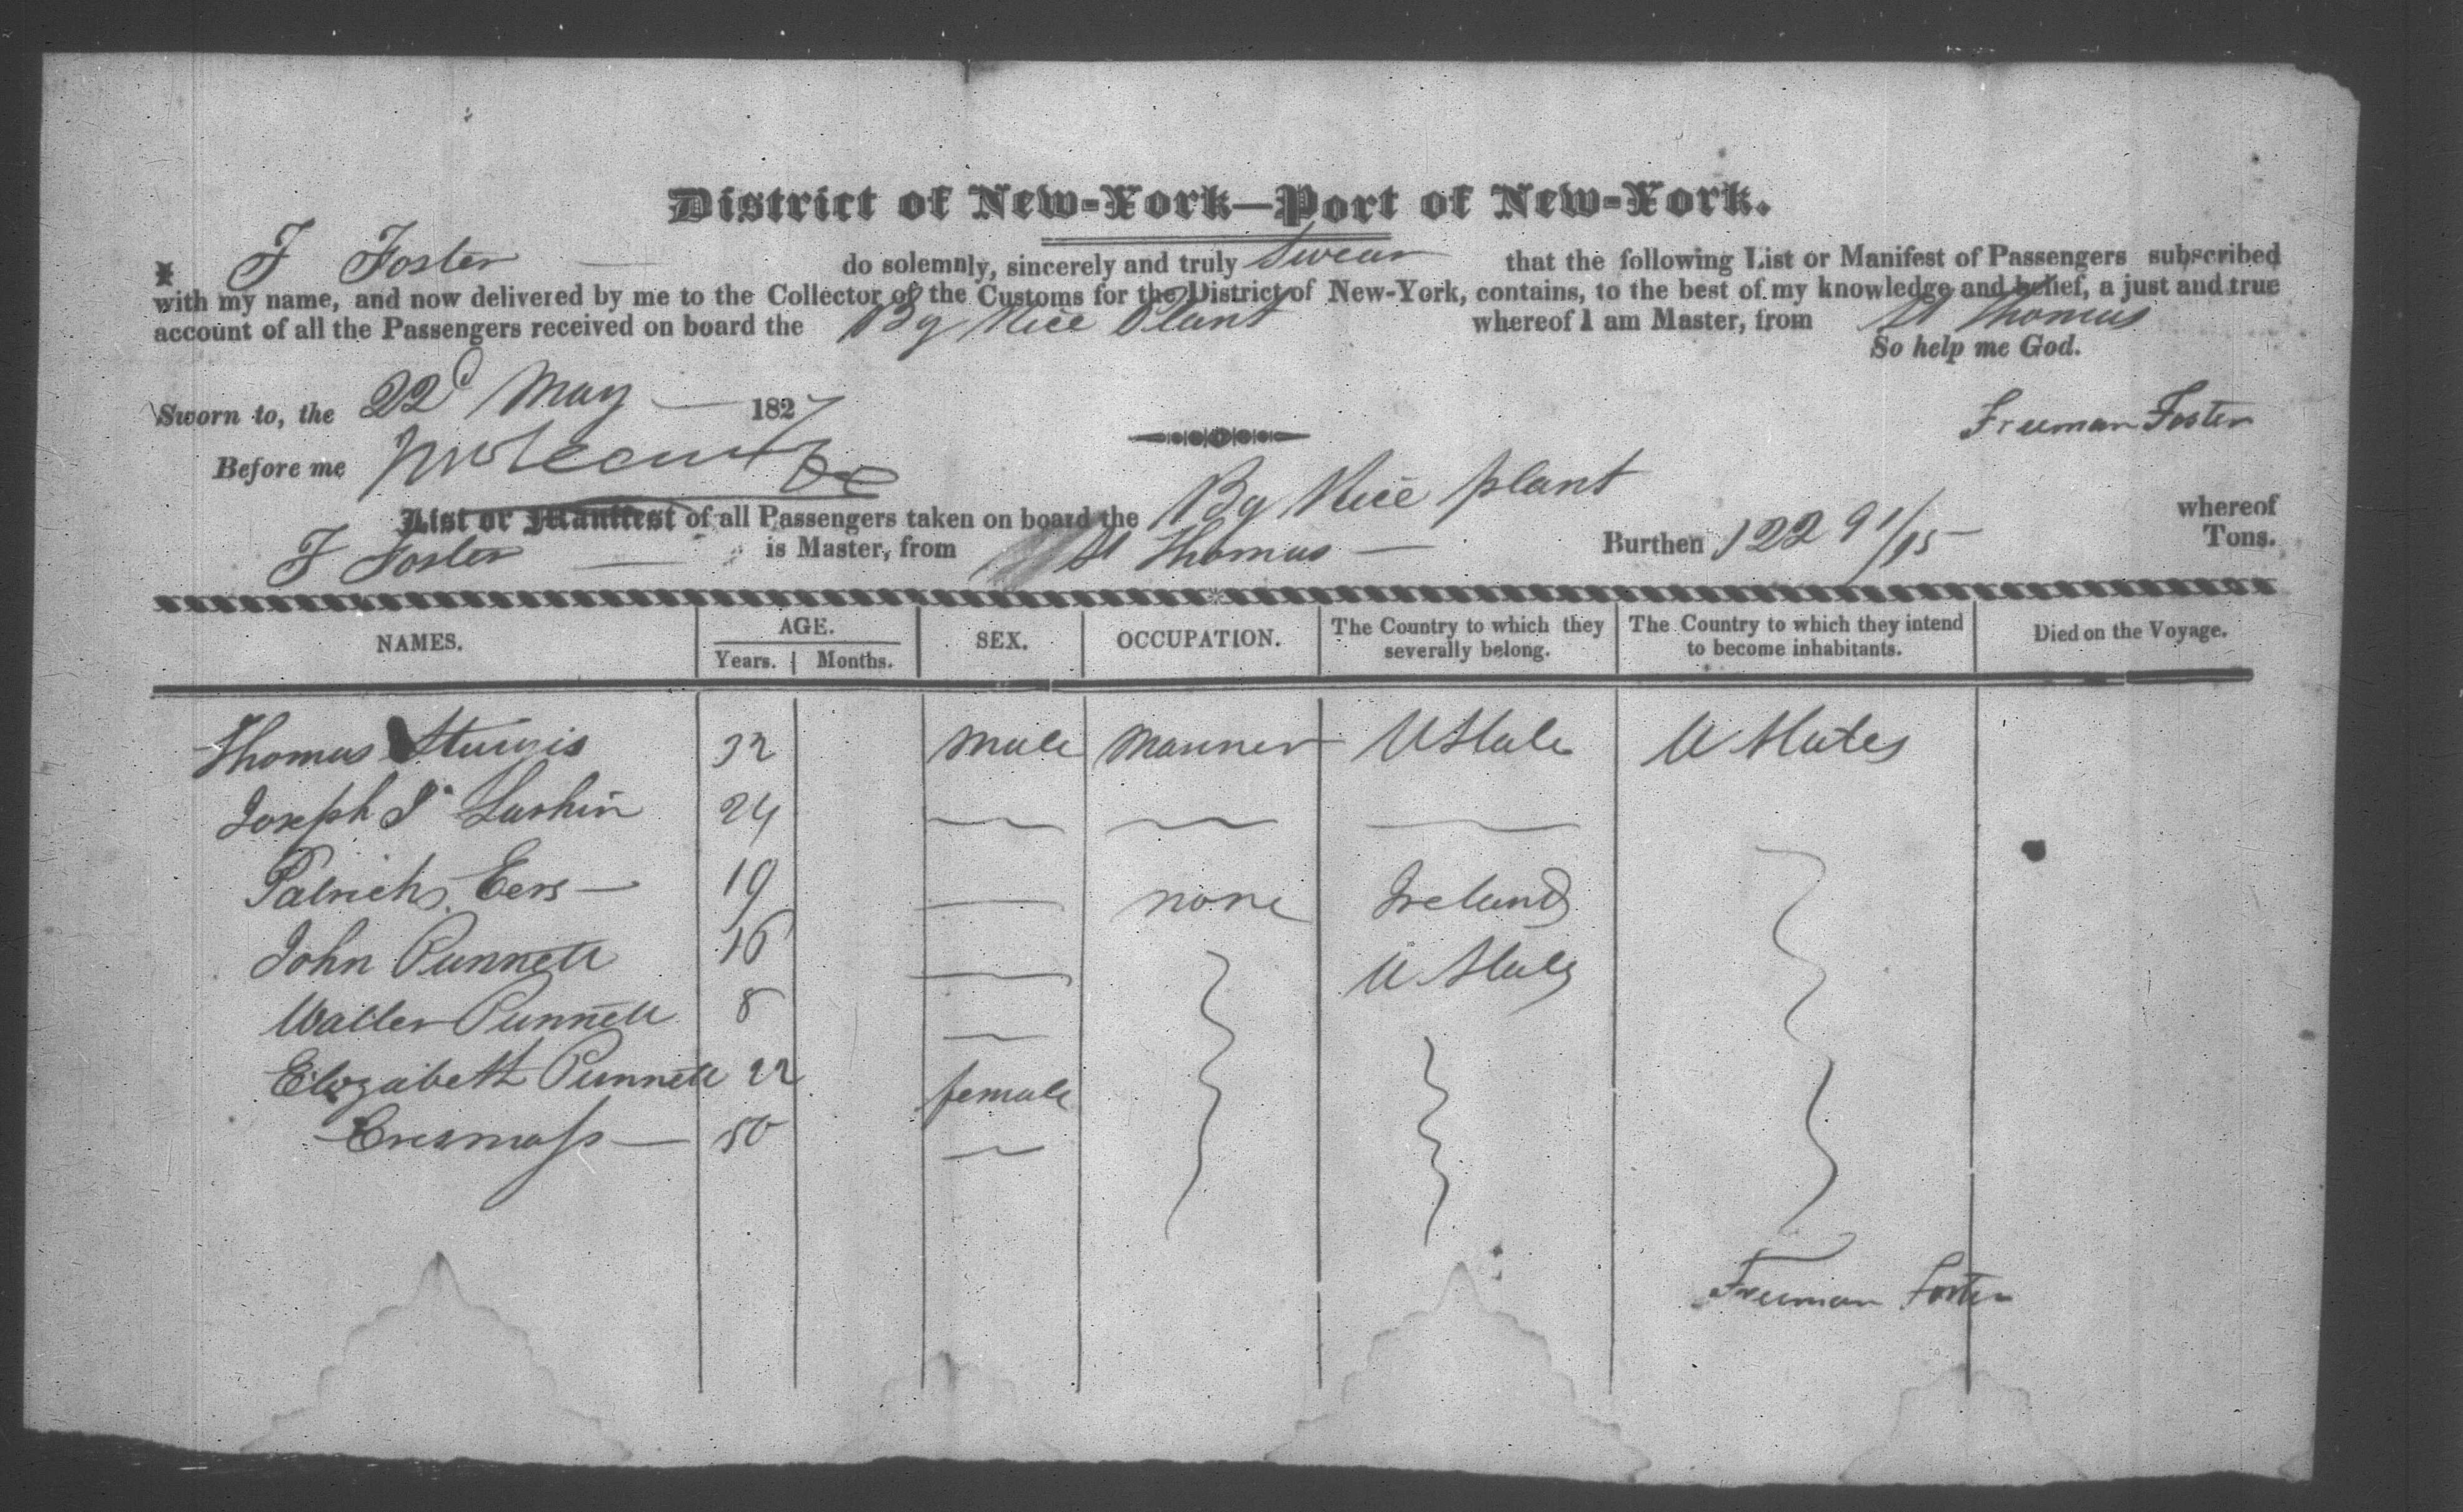 District of New-York—Port of New-York.
I F Foster — do solemnly, sincerely and truly Swear that the following List or Manifest of Passengers subscribed
with my name, and now delivered by me to the Collector of the Customs for the District of New-York, contains, to the best of my knowledge and belief, a just and true
account of all the Passengers received on board the Bg Rice Plant whereof I am Master, from St Thomas
So help me God.
Sworn to, the 22d May — 1827
Freeman Foster
Before me
List or Manifest of all Passengers taken on board the Bg Rice plant whereof
F Foster — is Master, from St Thomas — Burthen 122 91/95 Tons.
NAMES. AGE. SEX. OCCUPATION. The Country to which they severally belong. The Country to which they intend to become inhabitants. Died on the Voyage.
Years. Months.
Thomas Sturgis 32 male Mariner U State U States
Joseph J Larkin 24
Patrick Eers — 19 none Ireland
John Punnett 16 U States
Walter Punnett 8
Elizabeth Punnett 22 female
Cresmass — 50
Freeman Foster